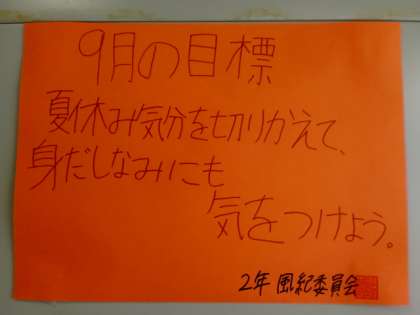 9月の目標
夏休み気分を切りかえて、
身だしなみにも
気をつけよう。
2年 風紀委員会